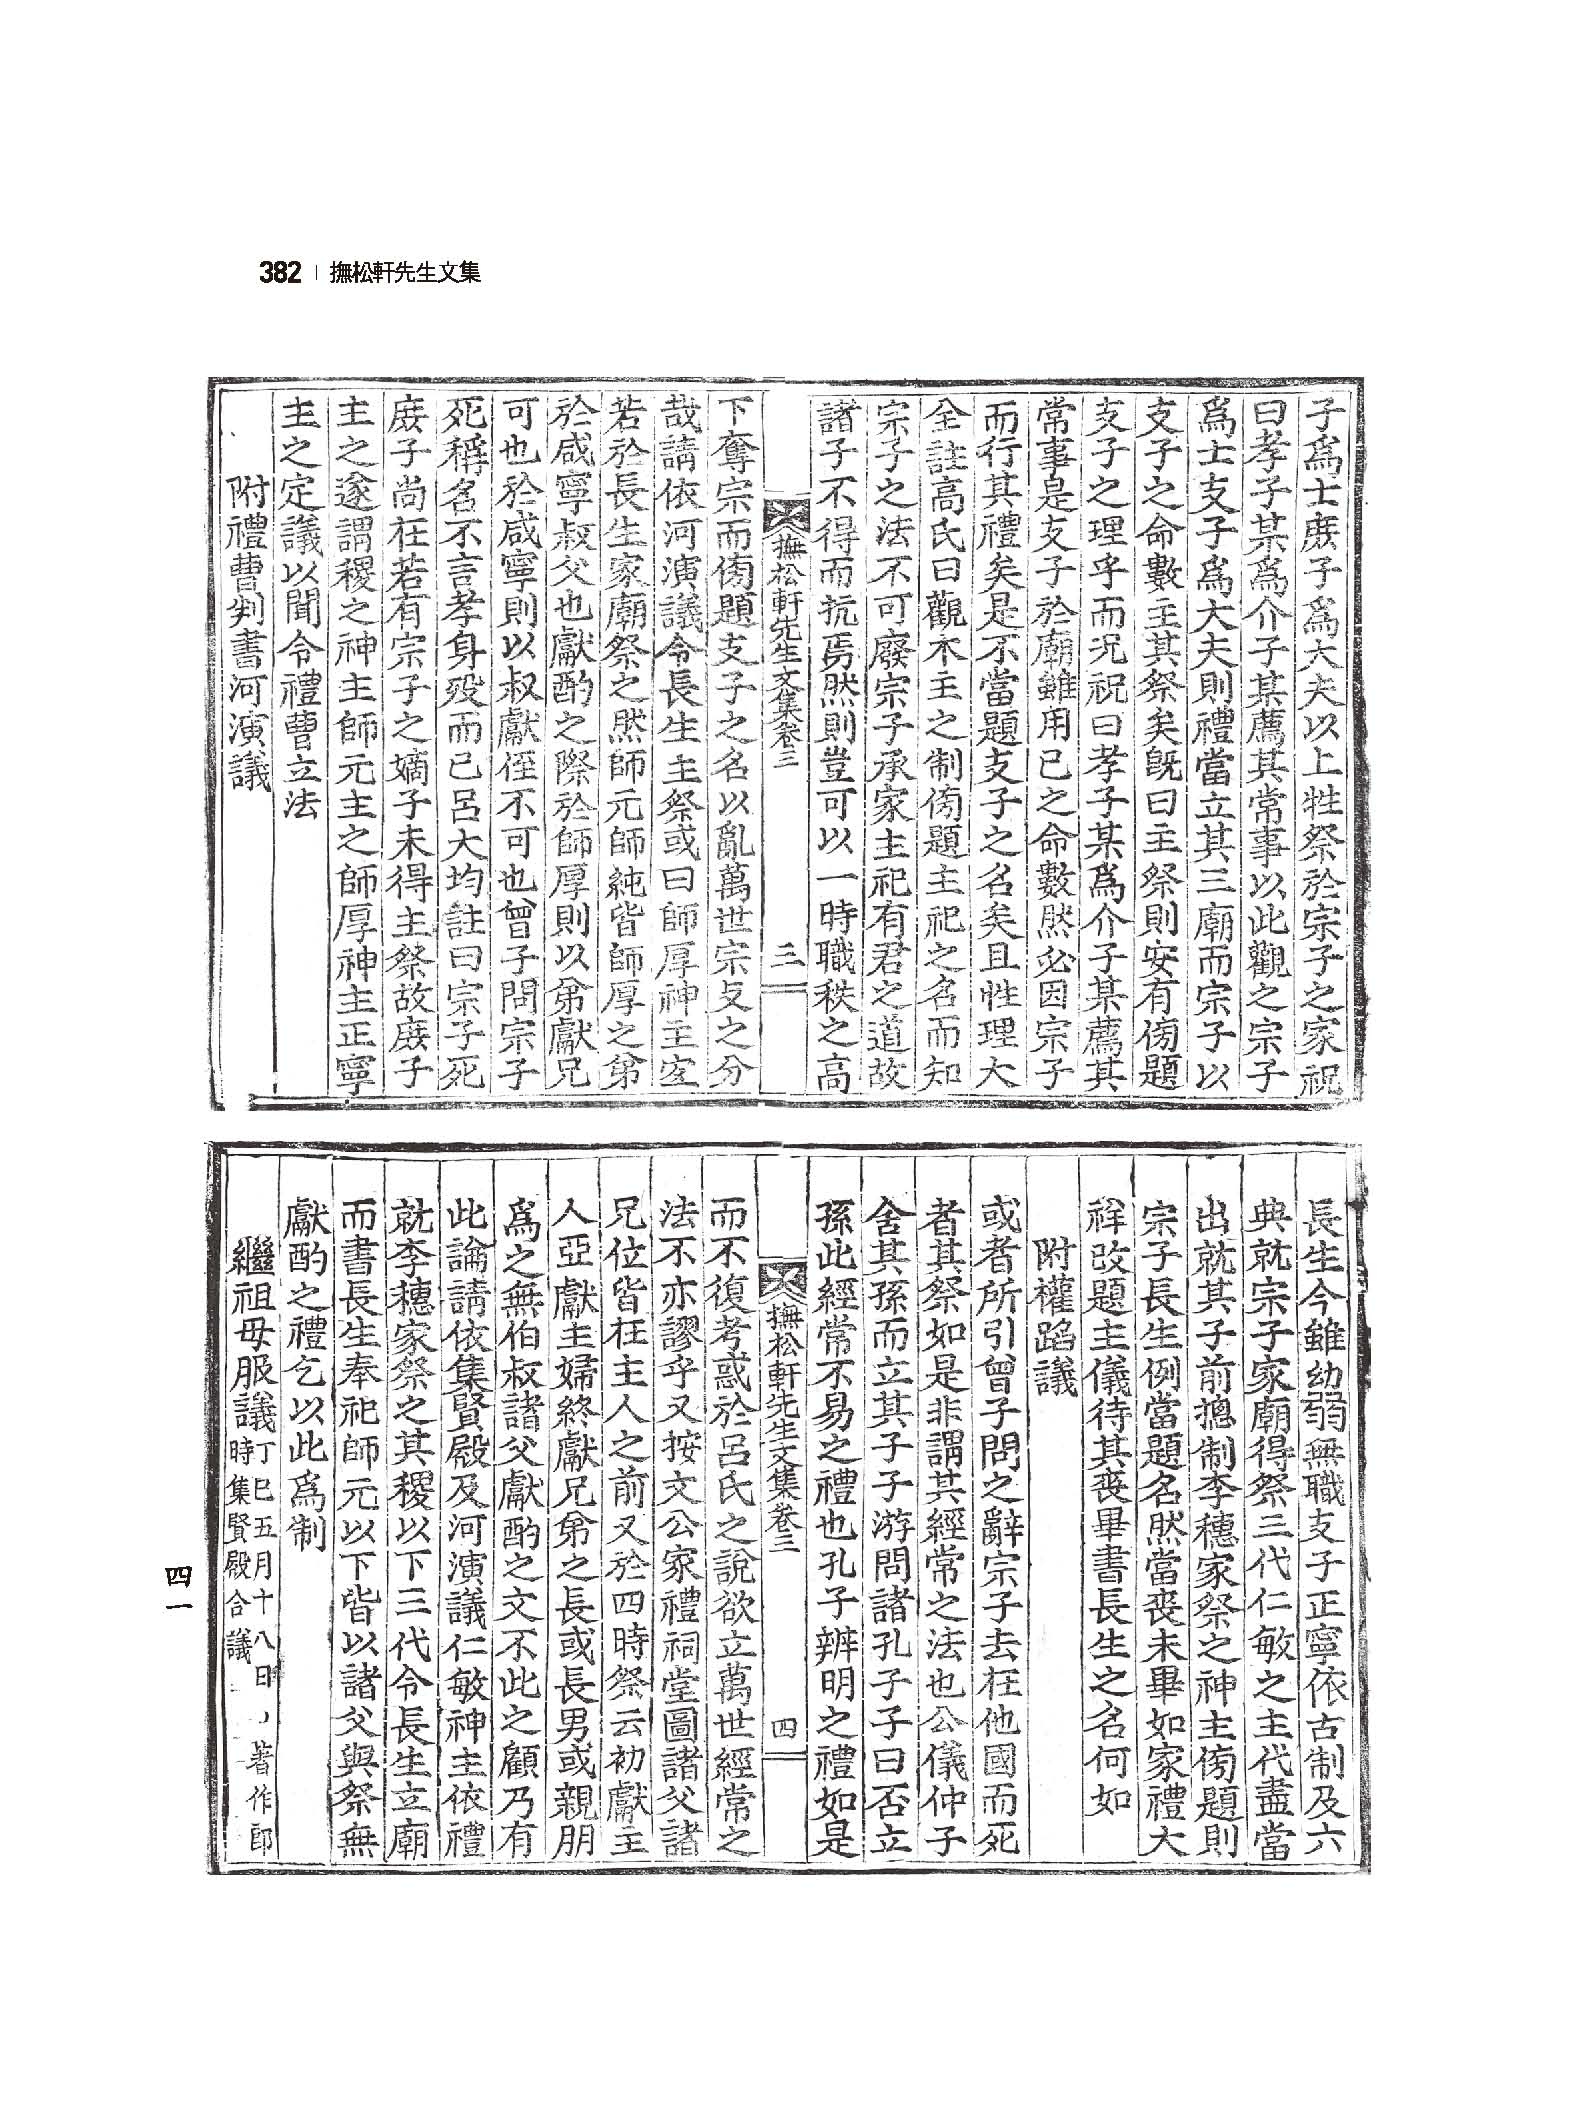 382 | 撫松軒先生文集
子爲士庶子爲大夫以上牲祭於宗子之家祝
曰孝子某爲介子某薦其常事以此觀之宗子
爲士支子爲大夫則禮當立其三廟而宗子以
支子之命數主其祭矣旣曰主祭則安有傍題
支子之理乎而况祝曰孝子某爲介子某薦其
常事是支子於廟雖用已之命數然必因宗子
而行其禮矣是不當題支子之名矣且性理大
全註高氏曰觀木主之制傍題主祀之名而知
宗子之法不可廢宗子承家主祀有君之道故
諸子不得而抗焉然則豈可以一時職秩之高
撫松軒先生文集卷三 三
下奪宗而傍題支子之名以亂萬世宗支之分
哉請依河演議令長生主祭或曰師厚神主安
若於長生家廟祭之然師元師純皆師厚之弟
於咸寧叔父也獻酌之際於師厚則以弟獻兄
可也於咸寧則以叔獻侄不可也曾子問宗子
死稱名不言孝身歿而已呂大均註曰宗子死
庶子尚在若有宗子之嫡子未得主祭故庶子
主之遂謂稷之神主師元主之師厚神主正寧
主之定議以聞令禮曹立法
附禮曹判書河演議
長生今雖幼弱無職支子正寧依古制及六
典就宗子家廟得祭三代仁敏之主代盡當
出就其子前摠制李穗家祭之神主傍題則
宗子長生例當題名然當喪未畢如家禮大
祥改題主儀待其喪畢書長生之名何如
附權蹈議
或者所引曾子問之辭宗子去在他國而死
者其祭如是非謂其經常之法也公儀仲子
舍其孫而立其子子游問諸孔子子曰否立
孫此經常不易之禮也孔子辨明之禮如是
撫松軒先生文集卷三 四
而不復考惑於呂氏之說欲立萬世經常之
法不亦謬乎又按文公家禮祠堂圖諸父諸
兄位皆在主人之前又於四時祭云初獻主
人亞獻主婦終獻兄弟之長或長男或親朋
爲之無伯叔諸父獻酌之文不此之顧乃有
此論請依集賢殿及河演議仁敏神主依禮
就李穗家祭之其稷以下三代令長生立廟
而書長生奉祀師元以下皆以諸父與祭無
獻酌之禮乞以此爲制
繼祖母服議丁巳五月十八日 著作郎
時集賢殿合議
四一